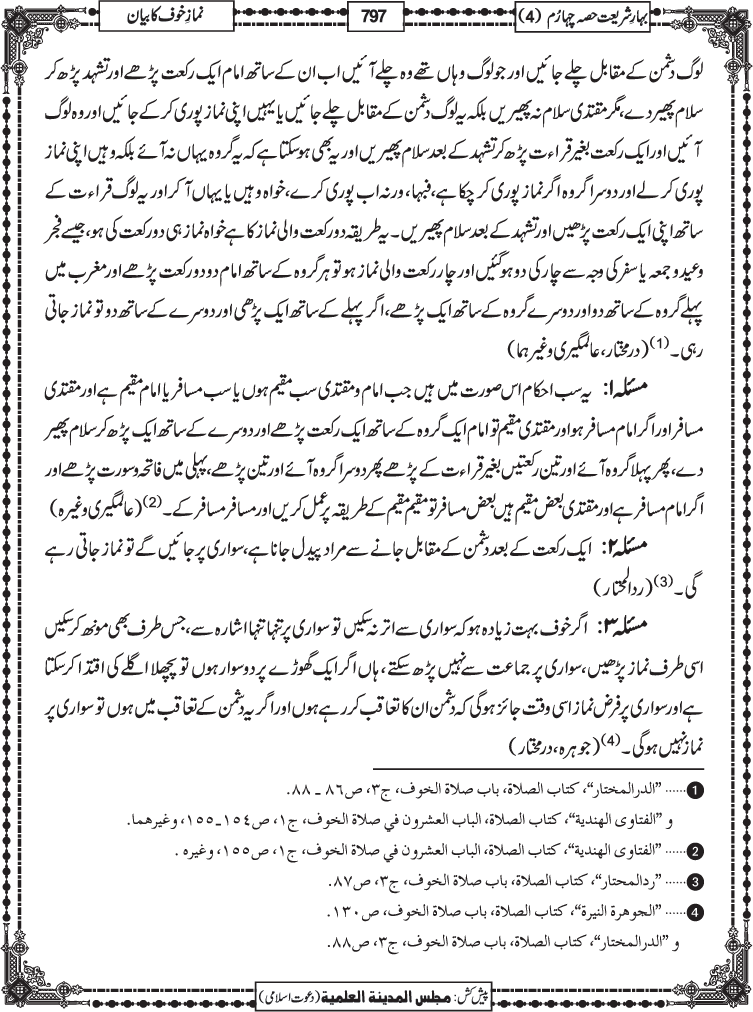 بہارِ شریعت حصہ چہارم (4)
797
نمازِ خوف کا بیان
لوگ دشمن کے مقابل چلے جائیں اور جو لوگ وہاں تھے وہ چلے آئیں اب ان کے ساتھ امام ایک رکعت پڑھے اور تشہد پڑھ کر
سلام پھیر دے، مگر مقتدی سلام نہ پھیریں بلکہ یہ لوگ دشمن کے مقابل چلے جائیں یا یہیں اپنی نماز پوری کر کے جائیں اور وہ لوگ
آئیں اور ایک رکعت بغیر قراءت پڑھ کر تشہد کے بعد سلام پھیریں اور یہ بھی ہوسکتا ہے کہ یہ گروہ یہاں نہ آئے بلکہ وہیں اپنی نماز
پوری کر لے اور دوسرا گروہ اگر نماز پوری کر چکا ہے، فبہا، ورنہ اب پوری کرے، خواہ وہیں یا یہاں آکر اور یہ لوگ قراءت کے
ساتھ اپنی ایک رکعت پڑھیں اور تشہد کے بعد سلام پھیریں۔ یہ طریقہ دو رکعت والی نماز کا ہے خواہ نماز ہی دو رکعت کی ہو، جیسے فجر
و عید و جمعہ یا سفر کی وجہ سے چار کی دو ہو گئیں اور چار رکعت والی نماز ہو تو ہر گروہ کے ساتھ امام دو دو رکعت پڑھے اور مغرب میں
پہلے گروہ کے ساتھ دو اور دوسرے گروہ کے ساتھ ایک پڑھے، اگر پہلے کے ساتھ ایک پڑھی اور دوسرے کے ساتھ دو تو نماز جاتی
رہی۔ (1) (درمختار، عالمگیری وغیرہما)
مسئلہ ۱: یہ سب احکام اس صورت میں ہیں جب امام و مقتدی سب مقیم ہوں یا سب مسافر یا امام مقیم ہے اور مقتدی
مسافر اور اگر امام مسافر ہو اور مقتدی مقیم تو امام ایک گروہ کے ساتھ ایک رکعت پڑھے اور دوسرے کے ساتھ ایک پڑھ کر سلام پھیر
دے، پھر پہلا گروہ آئے اور تین رکعتیں بغیر قراءت کے پڑھے پھر دوسرا گروہ آئے اور تین پڑھے، پہلی میں فاتحہ و سورت پڑھے اور
اگر امام مسافر ہے اور مقتدی بعض مقیم ہیں بعض مسافر تو مقیم مقیم کے طریقہ پر عمل کریں اور مسافر مسافر کے۔ (2) (عالمگیری وغیرہ)
مسئلہ ۲: ایک رکعت کے بعد دشمن کے مقابل جانے سے مراد پیدل جانا ہے، سواری پر جائیں گے تو نماز جاتی رہے
گی۔ (3) (ردالمحتار)
مسئلہ ۳: اگر خوف بہت زیادہ ہو کہ سواری سے اتر نہ سکیں تو سواری پر تنہا تنہا اشارہ سے، جس طرف بھی مونھ کرسکیں
اسی طرف نماز پڑھیں، سواری پر جماعت سے نہیں پڑھ سکتے، ہاں اگر ایک گھوڑے پر دو سوار ہوں تو پچھلا اگلے کی اقتدا کرسکتا
ہے اور سواری پر فرض نماز اسی وقت جائز ہوگی کہ دشمن ان کا تعاقب کر رہے ہوں اور اگر یہ دشمن کے تعاقب میں ہوں تو سواری پر
نماز نہیں ہوگی۔ (4) (جوہرہ، درمختار)
1 ...... ’’الدرالمختار‘‘، کتاب الصلاة، باب صلاة الخوف، ج۳، ص۸۶ ـ ۸۸.
و ’’الفتاوی الهندية‘‘، کتاب الصلاة، الباب العشرون في صلاة الخوف، ج۱، ص۱۵۴ـ۱۵۵، وغيرهما.
2 ...... ’’الفتاوی الهندية‘‘، کتاب الصلاة، الباب العشرون في صلاة الخوف، ج۱، ص۱۵۵، وغيره .
3 ...... ’’ردالمحتار‘‘، کتاب الصلاة، باب صلاة الخوف، ج۳، ص۸۷.
4 ...... ’’الجوهرة النيرة‘‘، کتاب الصلاة، باب صلاة الخوف، ص۱۳۰.
و ’’الدرالمختار‘‘، کتاب الصلاة، باب صلاة الخوف، ج۳، ص۸۸.
پیش کش: مجلس المدینة العلمیة (دعوت اسلامی)